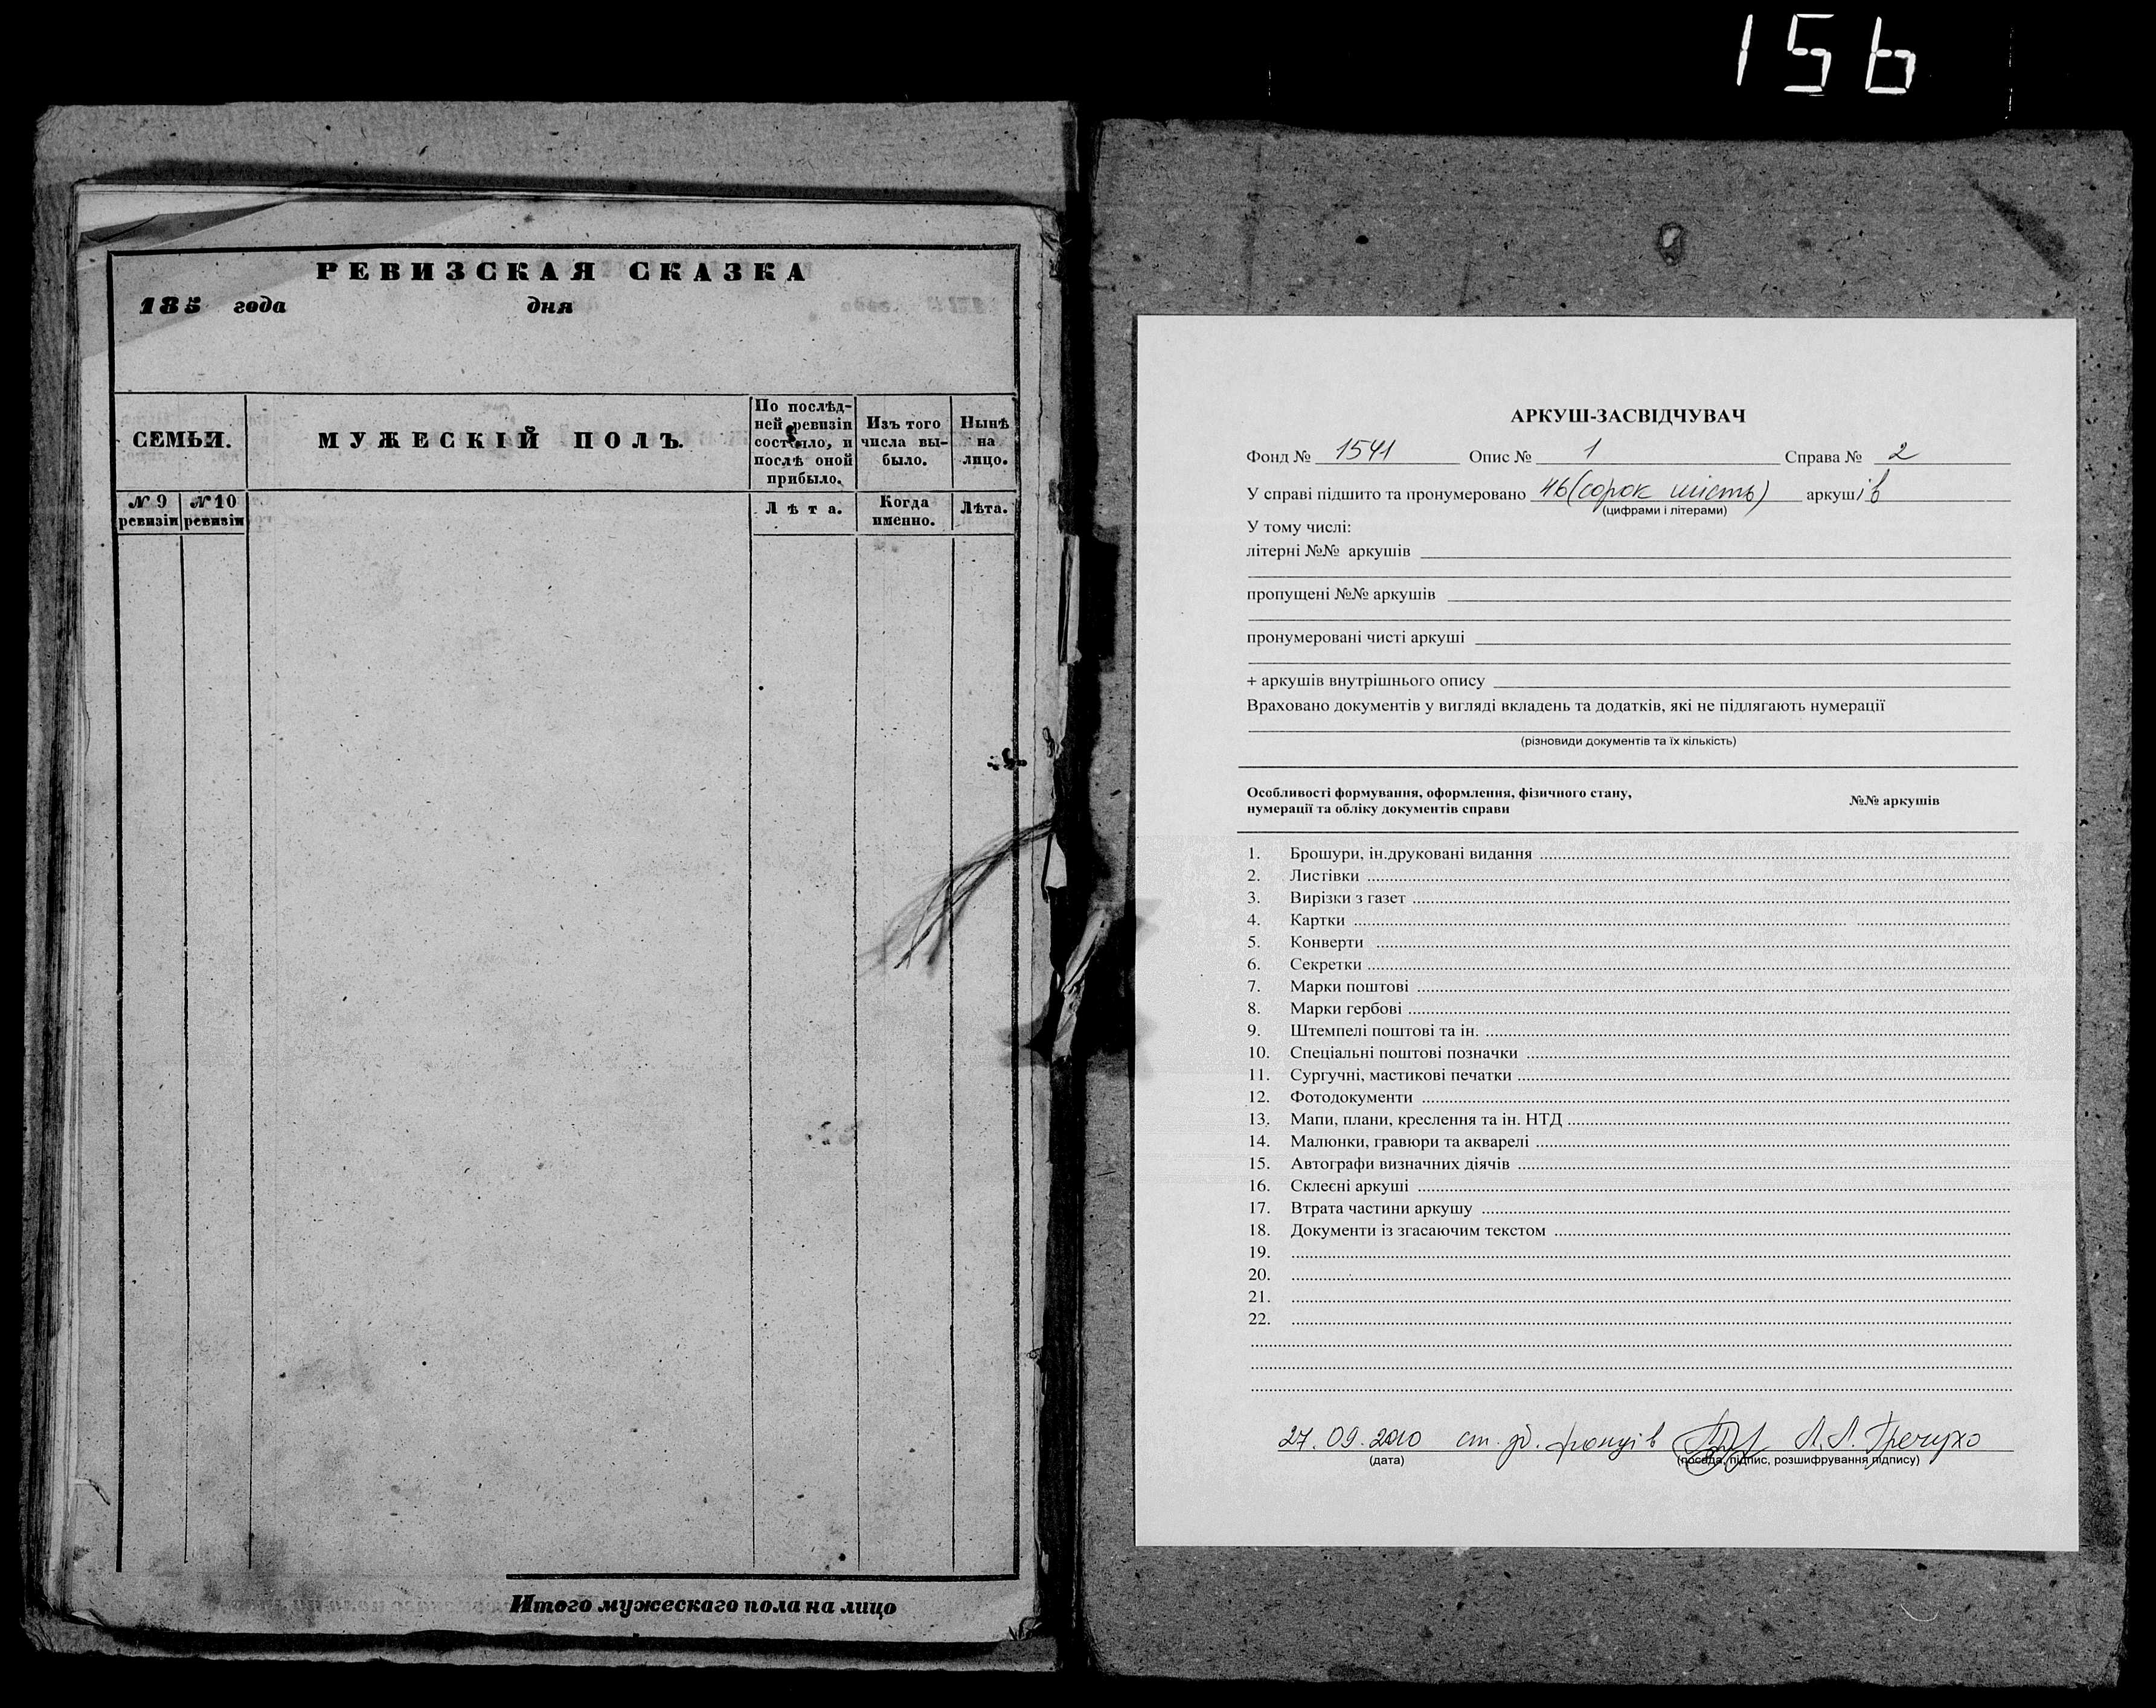 156
РЕВИЗСКАЯ СКАЗКА
185 года дня
СЕМЬИ.
МУЖЕСКІЙ ПОЛЪ.
По послѣд-
ней ревизіи
состояло, и
послѣ оной
прибыло.
Изъ того
числа вы-
было.
Нынѣ
на
лицо.
№ 9
ревизіи
№ 10
ревизіи
Лѣта.
Когда
именно.
Лѣта.
Итого мужескаго пола на лицо
АРКУШ-ЗАСВІДЧУВАЧ
Фонд № 1541 Опис № 1 Справа № 2
У справі підшито та пронумеровано 46 (сорок шість) аркушів
(цифрами і літерами)
У тому числі:
літерні №№ аркушів
пропущені №№ аркушів
пронумеровані чисті аркуші
+ аркушів внутрішнього опису
Враховано документів у вигляді вкладень та додатків, які не підлягають нумерації
(різновиди документів та їх кількість)
Особливості формування, оформлення, фізичного стану,
нумерації та обліку документів справи
№№ аркушів
1. Брошури, ін.друковані видання
2. Листівки
3. Вирізки з газет
4. Картки
5. Конверти
6. Секретки
7. Марки поштові
8. Марки гербові
9. Штемпелі поштові та ін.
10. Спеціальні поштові позначки
11. Сургучні, мастикові печатки
12. Фотодокументи
13. Мапи, плани, креслення та ін. НТД
14. Малюнки, гравюри та акварелі
15. Автографи визначних діячів
16. Склеєні аркуші
17. Втрата частини аркушу
18. Документи із згасаючим текстом
19.
20.
21.
22.
27.09.2010 ст. зб. фондів Л.Л. Гречухо
(дата) (посада, підпис, розшифрування підпису)